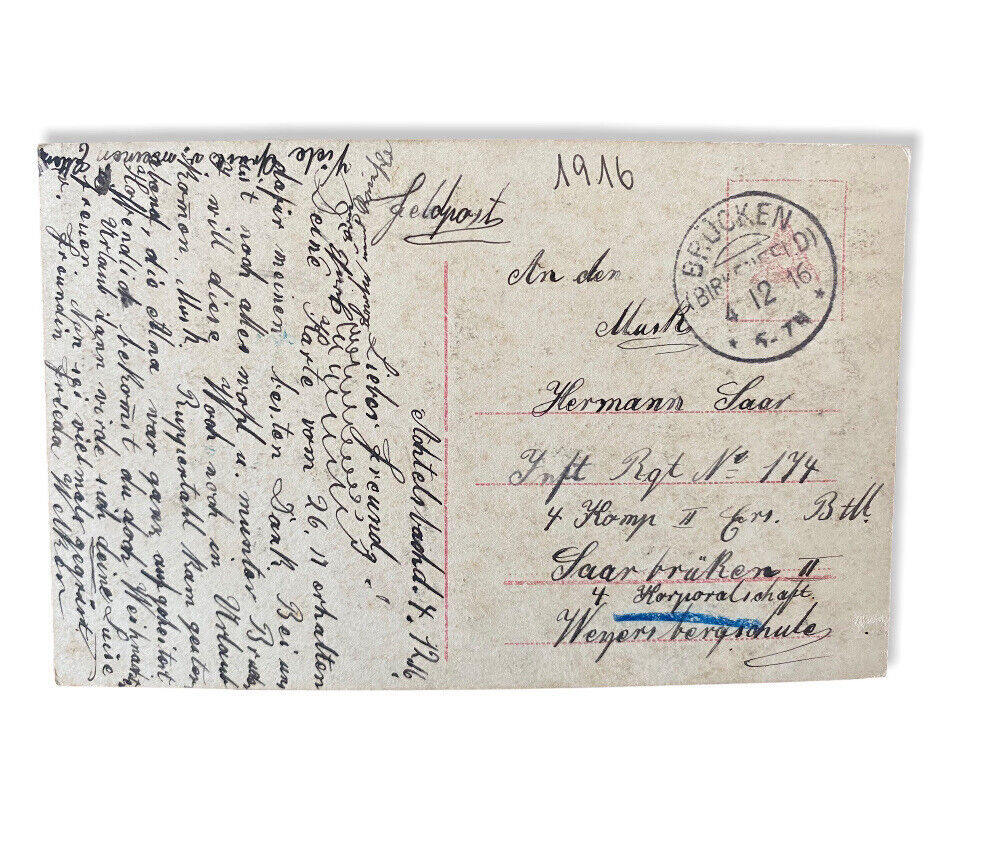 1916
Feldpost
BRÜCKEN
(BIRKENFELD)
4 12 16
5-7N
An den
Musk
Hermann Saar
Inft Rgt No 174
4 Komp II Ers. Btll.
Saarbrüken II
4 Korporalschaft.
Weyersbergschule
Achtelsbach d. 4. 12 16
Lieber Freund!
Deine Karte vom 26. 11 erhalten
dafür meinen besten Dank Bei uns
ist noch alles wohl u. munter Bruder
will diese Woch noch in Urlaub
kommen. Musk Ruppertahl kam gestern
abend, die Alma war ganz aufgeheitert
Hoffendlich bekomst du doch Weihnacht
Urlaub dann wird sich deine Luise
freuen. Nun sei vielmals gegrüsst
Freundin Frieda
Viele Grüss a. meinen